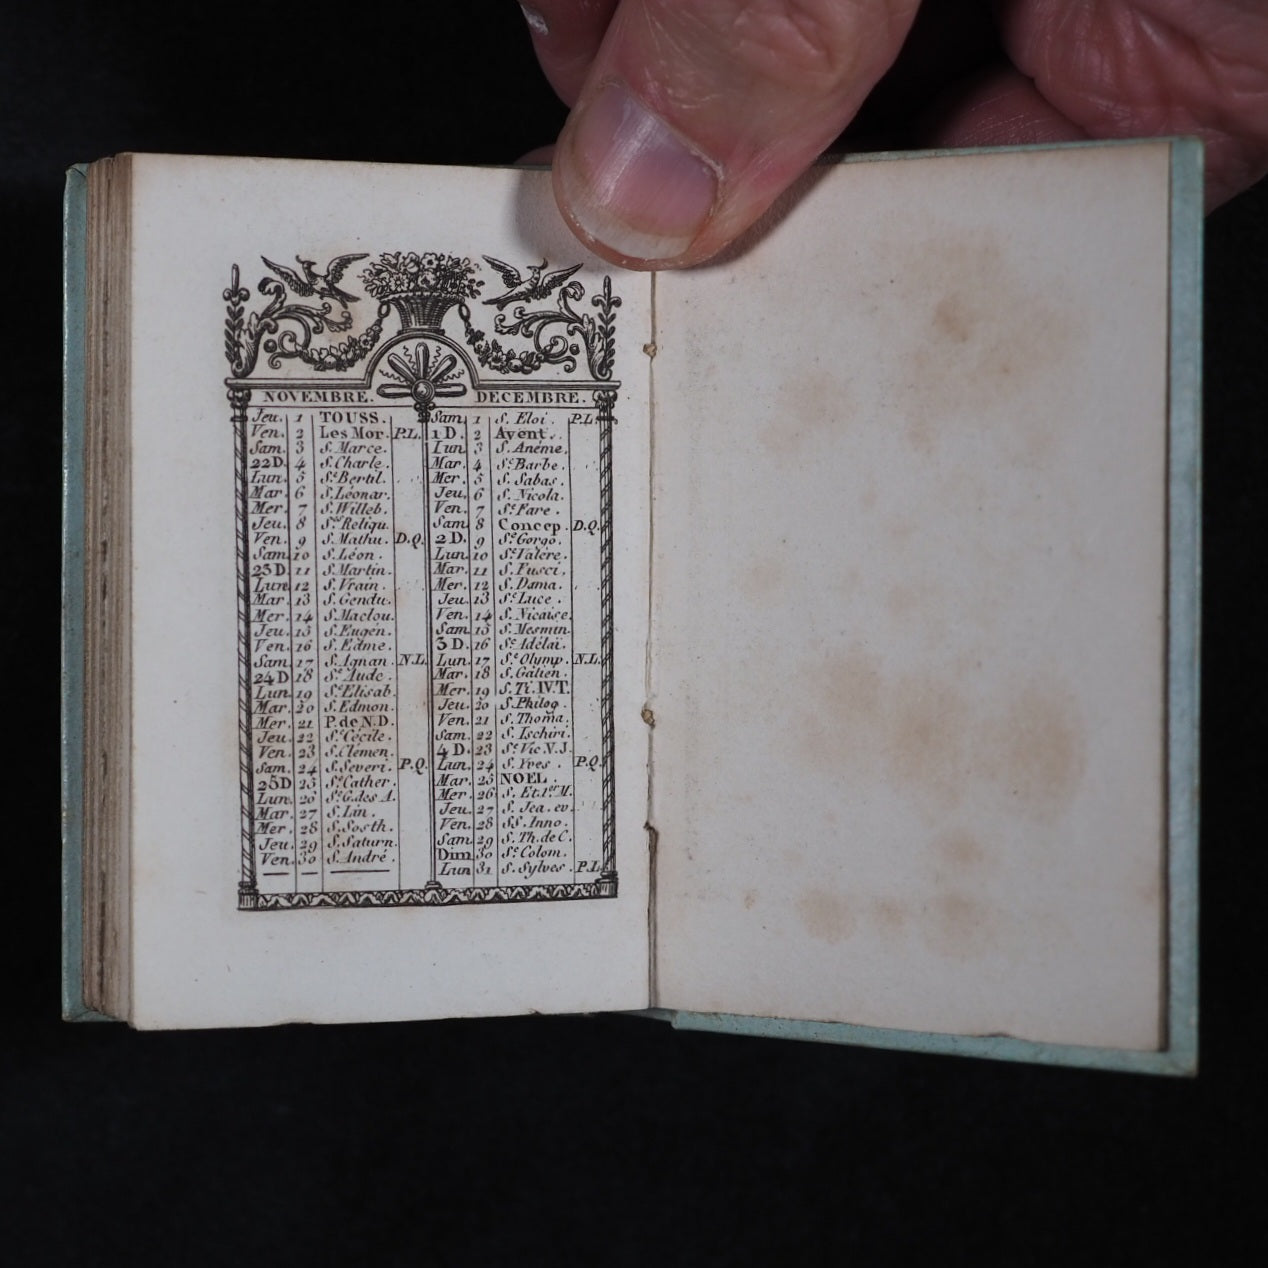 NOVEMBRE.
Jeu. 1 TOUSS.
Ven. 2 Les Mor. P.L.
Sam. 3 S. Marce.
22D. 4 S. Charle.
Lun. 5 Sᵉ. Bertil.
Mar. 6 S. Léonar.
Mer. 7 S. Willeb.
Jeu. 8 Sᵗᵉˢ Reliqu.
Ven. 9 S. Mathu. D.Q.
Sam. 10 S. Léon.
23D 11 S. Martin.
Lun. 12 S. Vrain.
Mar. 13 S. Gendu.
Mer. 14 S. Maclou.
Jeu. 15 S. Eugén.
Ven. 16 S. Edme.
Sam. 17 S. Agnan. N.L.
24D 18 Sᵉ. Aude.
Lun. 19 Sᵉ. Elisab.
Mar. 20 S. Edmon.
Mer. 21 P. de N.D.
Jeu. 22 Sᵉ. Cécile.
Ven. 23 S. Clémen.
Sam. 24 S. Severi. P.Q.
25D 25 Sᵉ. Cather.
Lun. 26 Sᵉ. G. des A.
Mar. 27 S. Lin.
Mer. 28 S. Sosth.
Jeu. 29 S. Saturn.
Ven. 30 S. André.
DECEMBRE.
Sam. 1 S. Eloi. P.L.
1 D. 2 Avent.
Lun. 3 S. Anéme.
Mar. 4 Sᵉ. Barbe.
Mer. 5 S. Sabas.
Jeu. 6 S. Nicola.
Ven. 7 Sᵉ. Fare.
Sam. 8 Concep. D.Q.
2 D. 9 Sᵉ. Gorgo.
Lun. 10 Sᵉ. Valère.
Mar. 11 S. Fusci.
Mer. 12 S. Dama.
Jeu. 13 Sᵉ. Luce.
Ven. 14 S. Nicaise.
Sam. 15 S. Mesmin.
3 D. 16 Sᵉ. Adélai.
Lun. 17 Sᵉ. Olymp. N.L.
Mar. 18 S. Gatien.
Mer. 19 S. Ti. IV.T.
Jeu. 20 S. Philog.
Ven. 21 S. Thoma.
Sam. 22 S. Ischiri.
4 D. 23 Sᵉ. Vic N.J.
Lun. 24 S. Yves. P.Q.
Mar. 25 NOEL.
Mer. 26 S. Et. 1ᵉʳ M.
Jeu. 27 S. Jea. ev.
Ven. 28 SS. Inno.
Sam. 29 S. Th. de C.
Dim. 30 Sᵉ. Colom.
Lun. 31 S. Sylves. P.L.